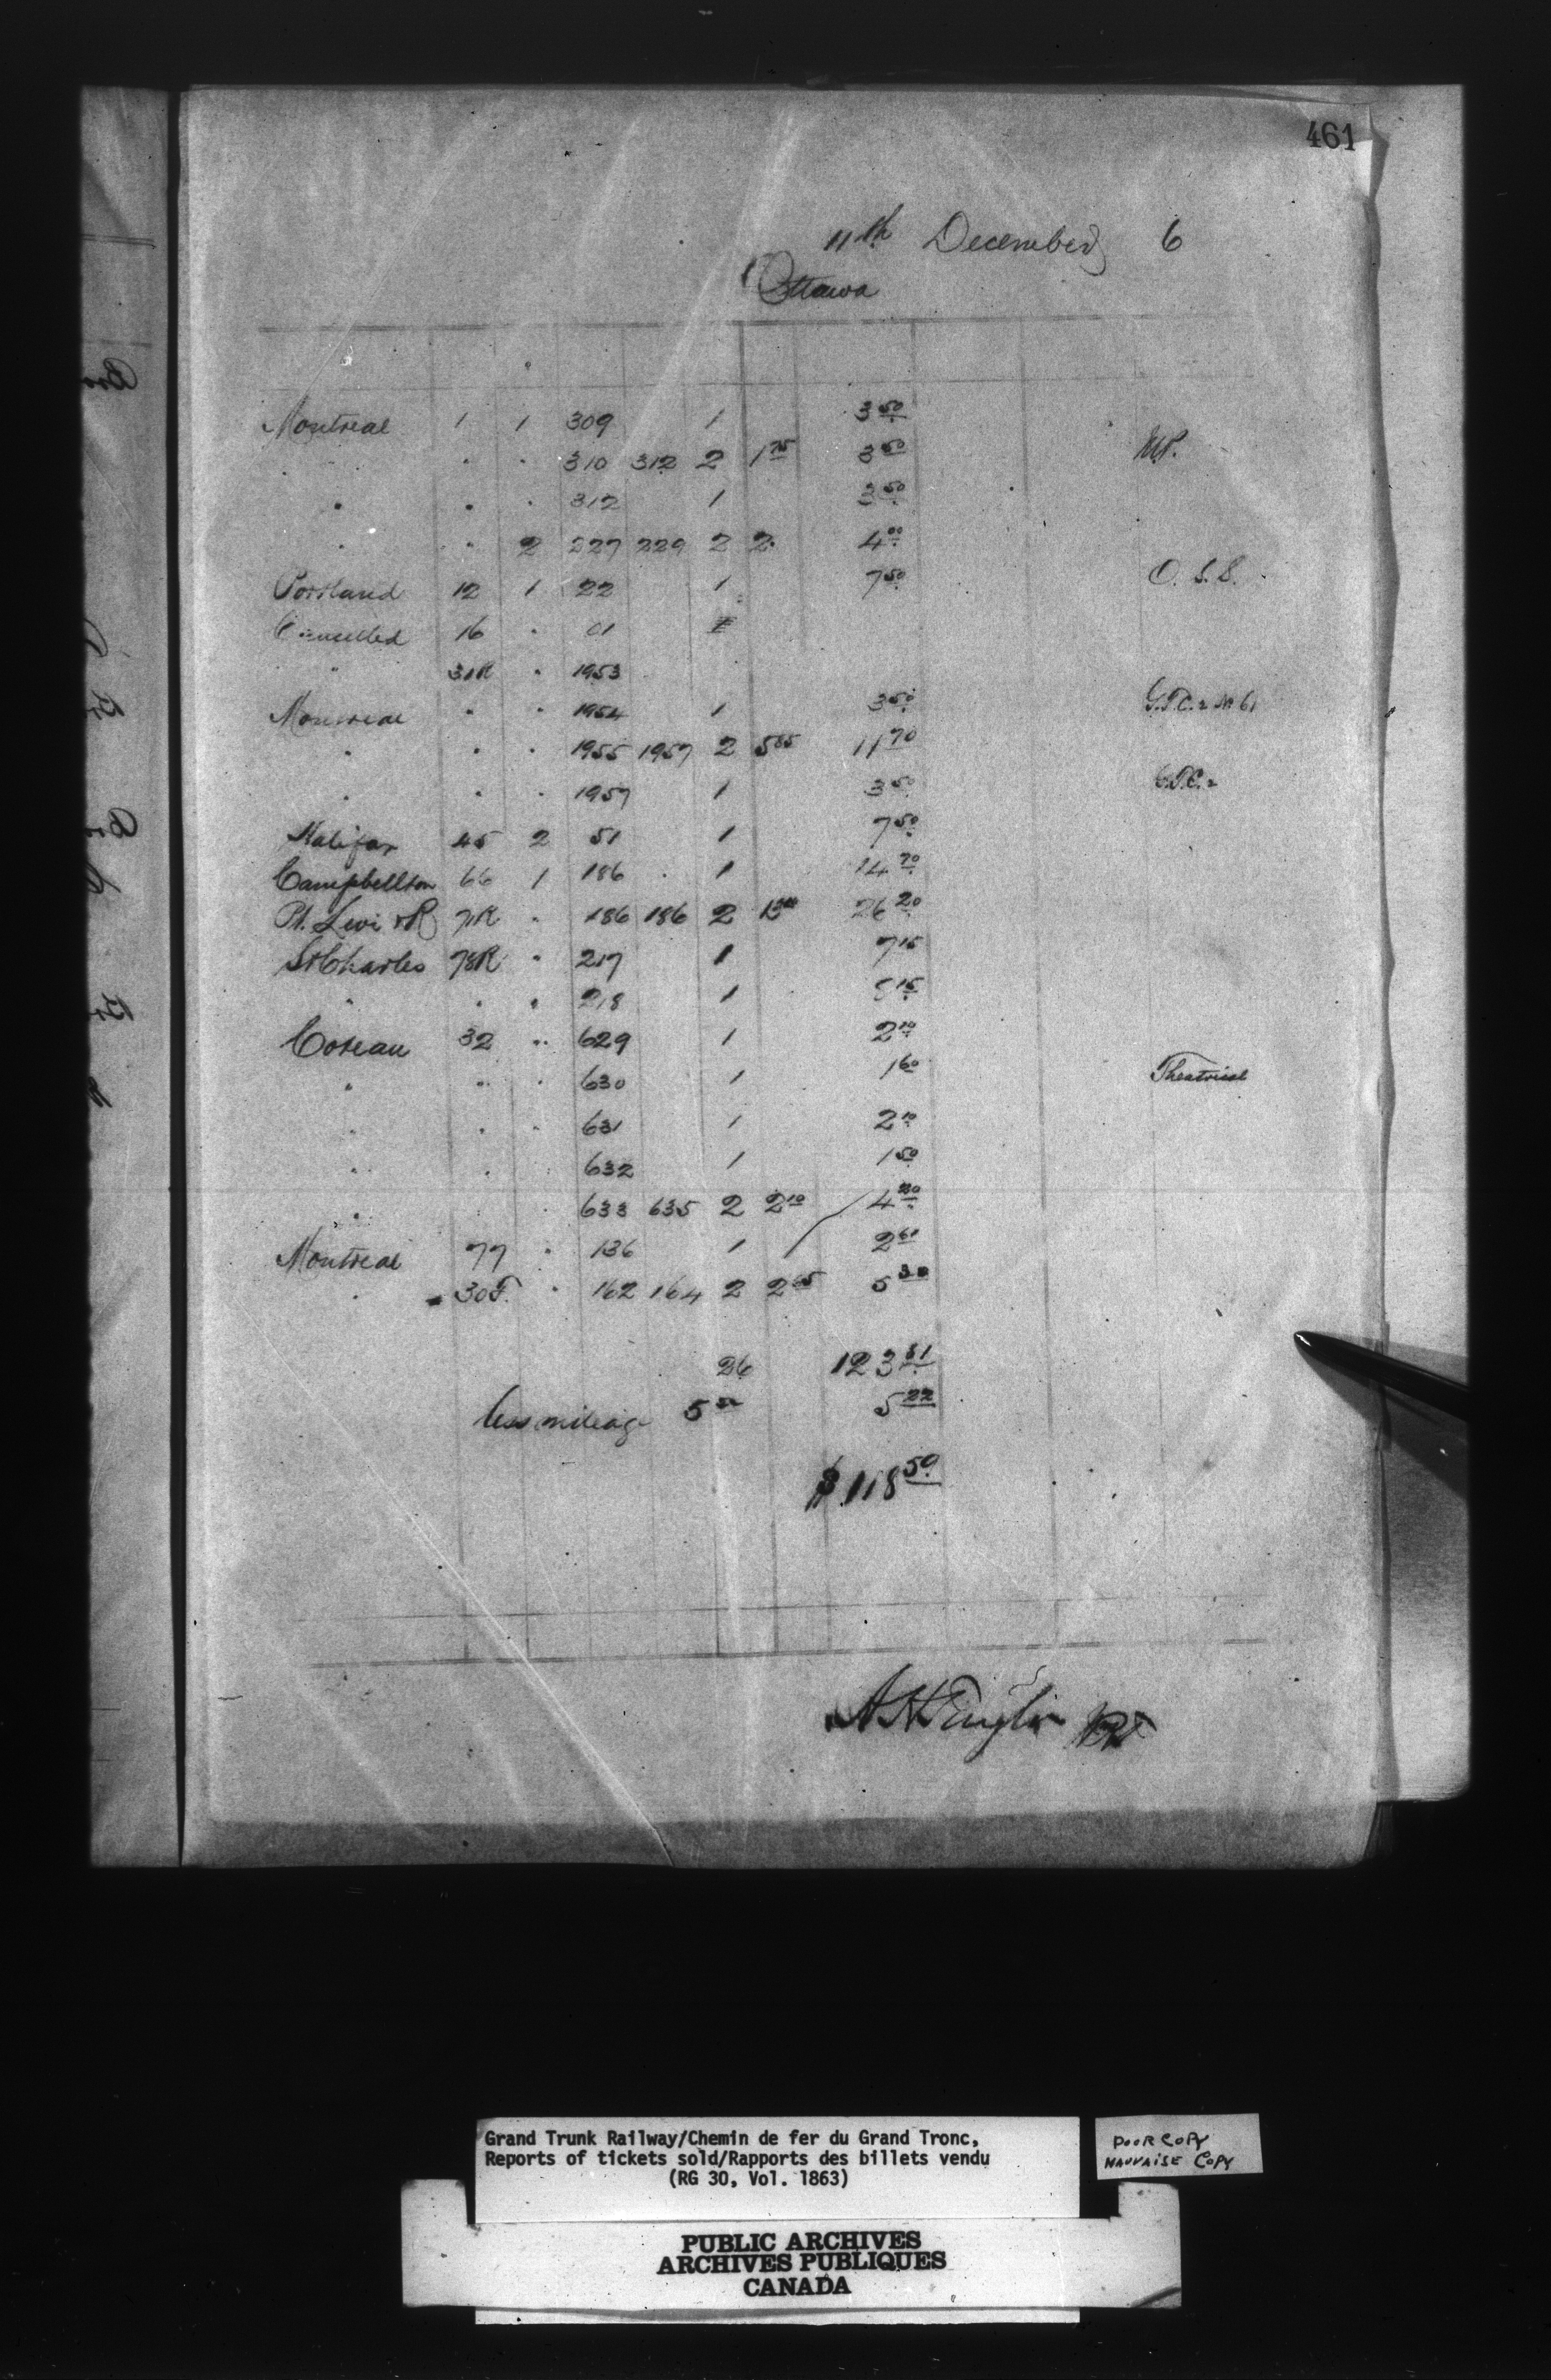 461
11th December 6
Ottawa
Montreal 1 1 309 1 3 50
" " " 310 312 2 1 75 3 50 M.P.
" " " 312 1 3 50
" " 2 227 229 2 2 4 00
Portland 12 1 22 1 7 50 O. S. S.
Cancelled 16 " 01
" 31R " 1953
Montreal " " 1954 1 3 50
" " " 1955 1957 2 5 85 11 70
" " " 1957 1 3 50
Halifax 45 2 51 1 7 50
Campbellton 66 1 186 1 14 70
Pt. Levi & R 71R " 186 186 2 26 20
St Charles 78R " 217 1 7 15
" " " 218 1 15
Coteau 32 " 629 1 2 10
" " " 630 1 1 60 Theatrical
" " " 631 1 2 10
" " " 632 1 1 50
" " 633 635 2 2 10 4 20
Montreal 77 " 136 1 2 61
" 30F. " 162 164 2 2 65 5 30
26 123 81
Less mileage 5 22
$118 59
Grand Trunk Railway/Chemin de fer du Grand Tronc,
Reports of tickets sold/Rapports des billets vendu
(RG 30, Vol. 1863)
POOR COPY
MAUVAISE COPY
PUBLIC ARCHIVES
ARCHIVES PUBLIQUES
CANADA